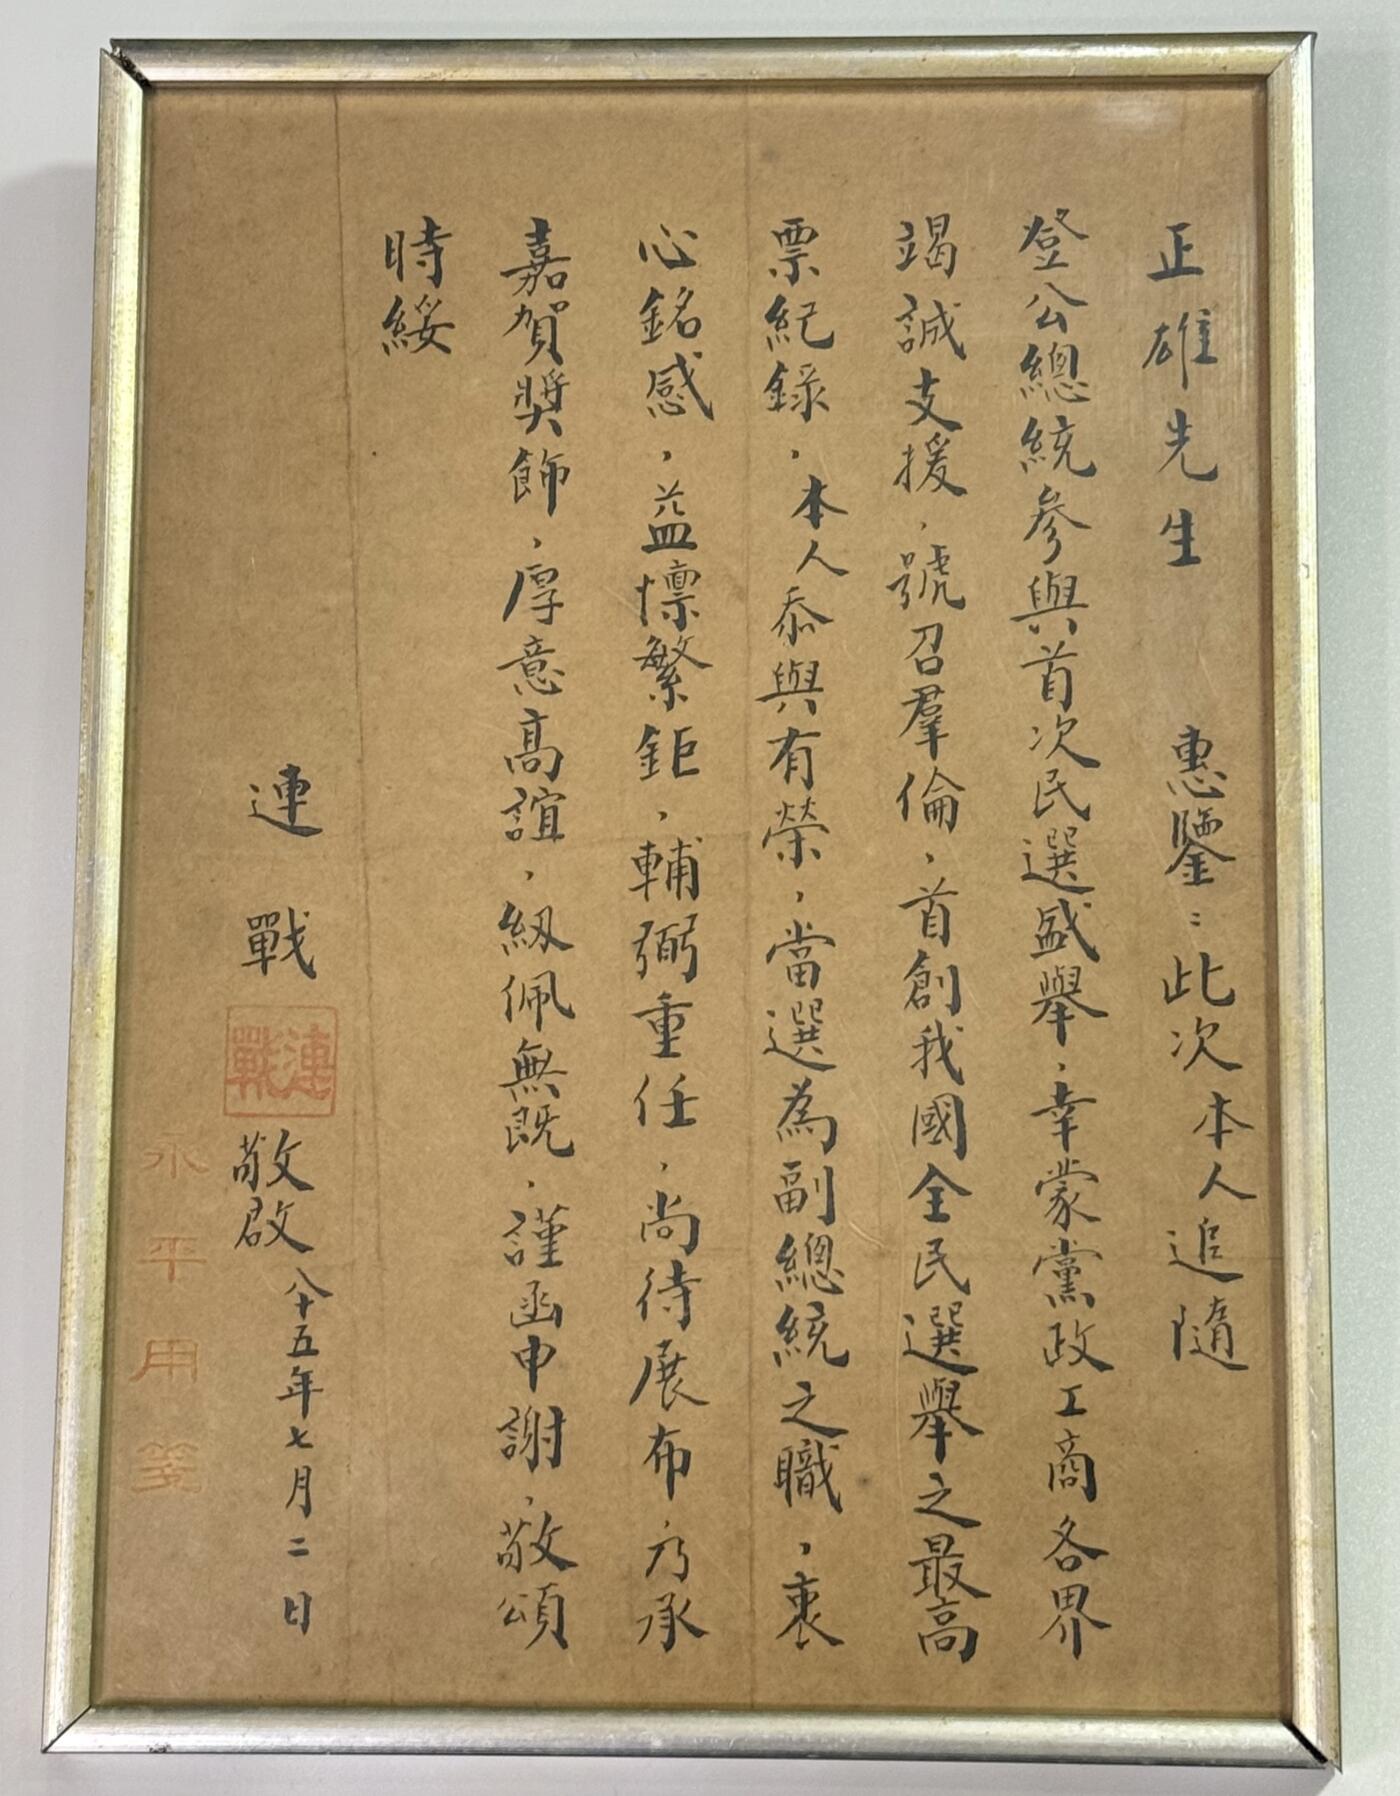 正雄先生 惠鑒：此次本人追隨
登公總統參與首次民選盛舉，幸蒙黨政工商各界
竭誠支援，號召羣倫，首創我國全民選舉之最高
票紀錄，本人忝與有榮，當選為副總統之職，衷
心銘感，益懍繁鉅，輔弼重任，尚待展布，乃承
嘉賀獎飾，厚意高誼，紉佩無既，謹函申謝，敬頌
時綏
連戰 敬啟 八十五年七月二日
連戰
永平用箋